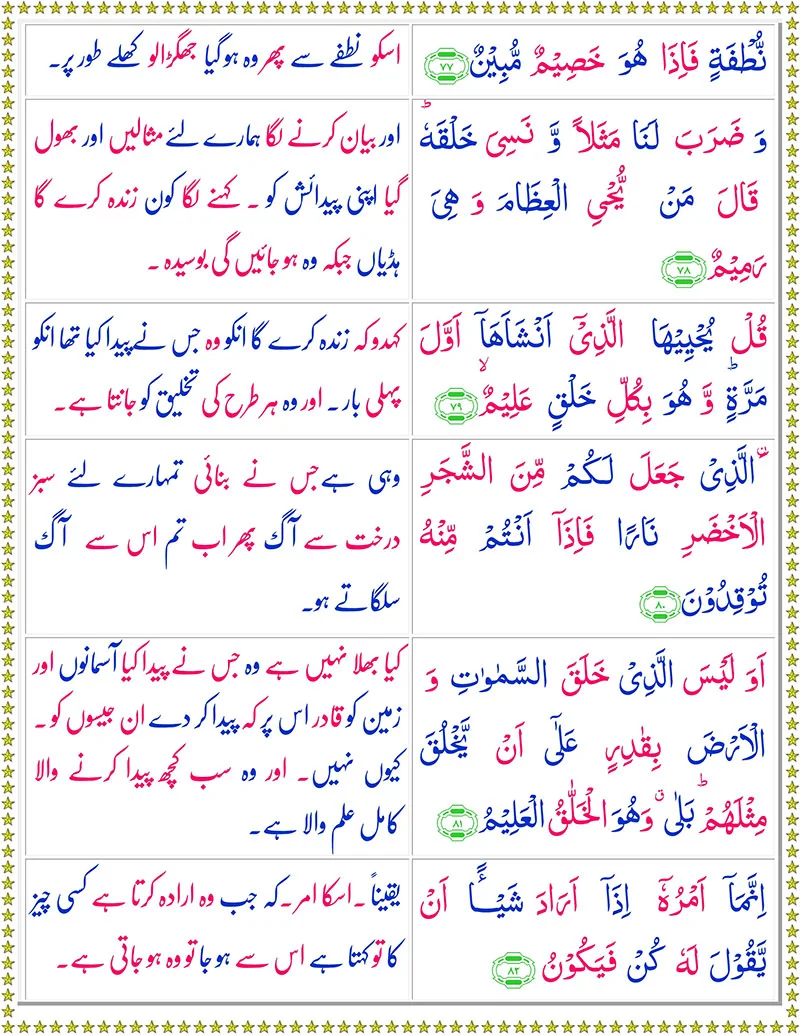 نُّطۡفَةٍ فَاِذَا هُوَ خَصِيۡمٌ مُّبِيۡنٌ ﴿۷۷﴾
اسکو نطفے سے پھر وہ ہوگیا جھگڑالو کھلے طور پر۔
وَ ضَرَبَ لَنَا مَثَلًا وَّ نَسِىَ خَلۡقَهٗ ؕ
قَالَ مَنۡ يُّحۡىِ الۡعِظَامَ وَ هِىَ
رَمِيۡمٌ ﴿۷۸﴾
اور بیان کرنے لگا ہمارے لئے مثالیں اور بھول
گیا اپنی پیدائش کو ۔ کہنے لگا کون زندہ کرے گا
ہڈیاں جبکہ وہ ہو جائیں گی بوسیدہ ۔
قُلۡ يُحۡيِيۡهَا الَّذِىۡۤ اَنۡشَاَهَاۤ اَوَّلَ
مَرَّةٍ ؕ وَّ هُوَ بِكُلِّ خَلۡقٍ عَلِيۡمٌ ۙ ﴿۷۹﴾
کہدو کہ زندہ کرے گا انکو وہ جس نے پیدا کیا تھا انکو
پہلی بار ۔ اور وہ ہر طرح کی تخلیق کو جانتا ہے۔
۟الَّذِىۡ جَعَلَ لَـكُمۡ مِّنَ الشَّجَرِ
الۡاَخۡضَرِ نَارًا فَاِذَاۤ اَنۡتُمۡ مِّنۡهُ
تُوۡقِدُوۡنَ ﴿۸۰﴾
وہی ہے جس نے بنائی تمہارے لئے سبز
درخت سے آگ پھر اب تم اس سے آگ
سلگاتے ہو۔
اَوَ لَيۡسَ الَّذِىۡ خَلَقَ السَّمٰوٰتِ وَ
الۡاَرۡضَ بِقٰدِرٍ عَلٰٓى اَنۡ يَّخۡلُقَ
مِثۡلَهُمۡ ؕ بَلٰى وَهُوَ الۡخَـلّٰقُ الۡعَلِيۡمُ ﴿۸۱﴾
کیا بھلا نہیں ہے وہ جس نے پیدا کیا آسمانوں اور
زمین کو قادر اس پر کہ پیدا کر دے ان جیسوں کو ۔
کیوں نہیں۔ اور وہ سب کچھ پیدا کرنے والا
کامل علم والا ہے۔
اِنَّمَاۤ اَمۡرُهٗۤ اِذَاۤ اَرَادَ شَيْـًٔـا اَنۡ
يَّقُوۡلَ لَهٗ كُنۡ فَيَكُوۡنُ ﴿۸۲﴾
یقیناً ۔اسکا امر ۔کہ جب وہ ارادہ کرتا ہے کسی چیز
کا تو کہتا ہے اس سے ہو جا تو وہ ہو جاتی ہے ۔